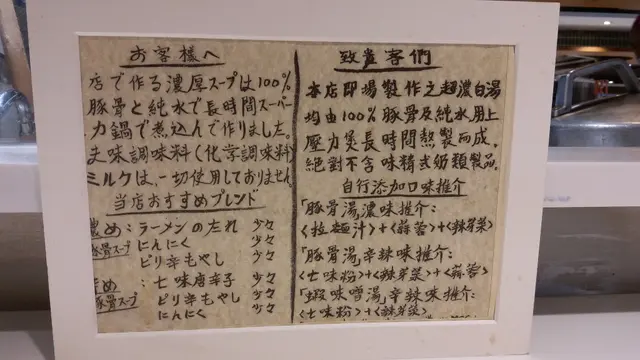 お客様へ
店で作る濃厚スープは100%
豚骨と純水で長時間スーパー
力鍋で煮込んで作りました。
味調味料(化学調味料)
ミルクは、一切使用しておりません。
当店おすすめブレンド
濃め:ラーメンのたれ 少々
豚骨スープ にんにく 少々
ピリ辛もやし 少々
め:七味唐辛子 少々
豚骨スープ ピリ辛もやし 少々
にんにく 少々
致貴客們
本店即場製作之超濃白湯
均由100%豚骨及純水用上
壓力煲長時間熬製而成,
絕對不含味精或奶類製品。
自行添加口味推介
「豚骨湯」濃味推介:
<拉麵汁>+<蒜蓉>+<辣芽菜>
「豚骨湯」辛辣味推介:
<七味粉>+<辣芽菜>+<蒜蓉>
「蝦味噌湯」辛辣味推介:
<七味粉>+<辣芽菜>